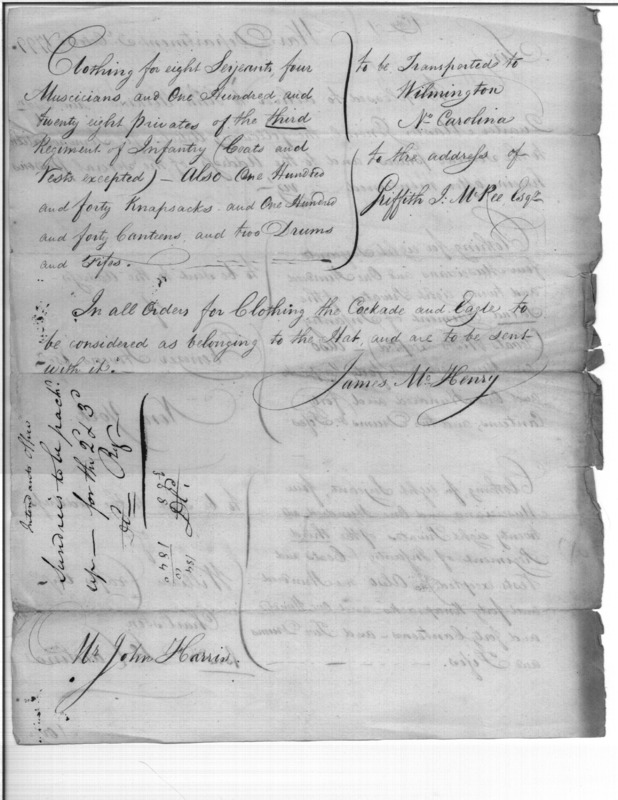 Clothing for eight Serjeants, four
Muscicians, and One Hundred and
twenty eight privates of the third
Regiment of Infantry (Coats and
Vests excepted) – Also One Hundred
and forty Knapsacks and One Hundred
and forty Canteens, and two Drums
and Fifes.
to be Transported to
Wilmington
No Carolina
to the address of
Griffith J. McRee Esqr
In all Orders for Clothing the Cockade and Eagle to
be considered as belonging to the Hat, and are to be sent
with it.
James McHenry
Sundries to be pack'd
up – for the 2d & 3d
Mr John Harris.